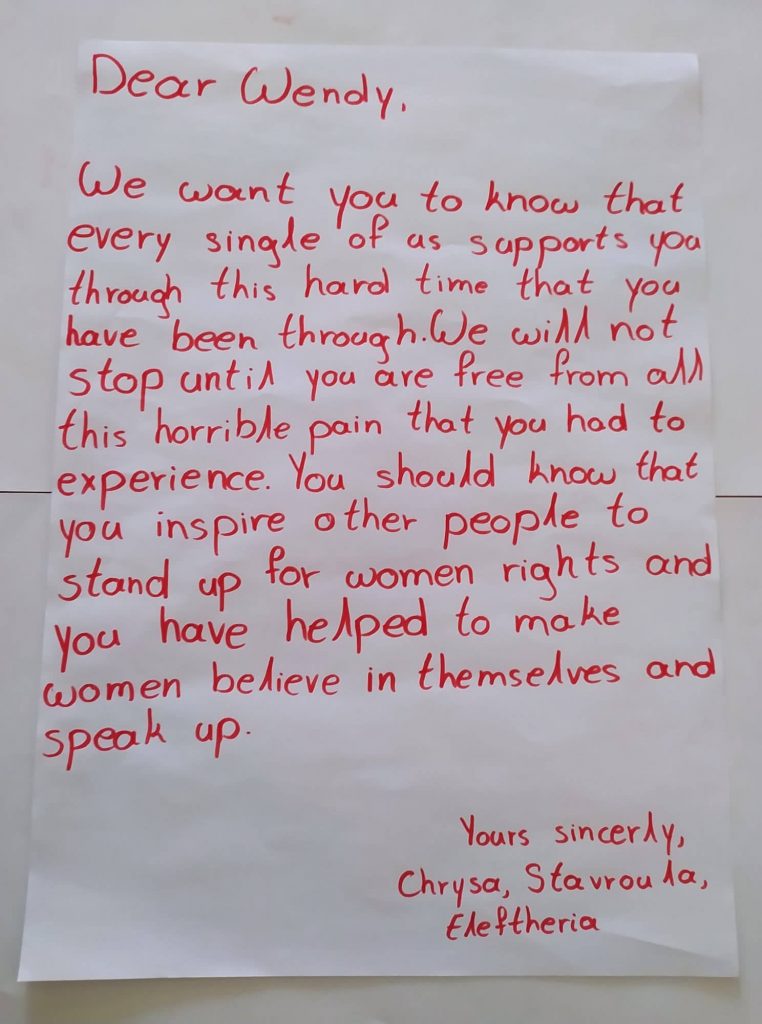 Dear Wendy,
We want you to know that
every single of us supports you
through this hard time that you
have been through. We will not
stop until you are free from all
this horrible pain that you had to
experience. You should know that
you inspire other people to
stand up for women rights and
you have helped to make
women believe in themselves and
speak up.
Yours sincerly,
Chrysa, Stavroula,
Eleftheria